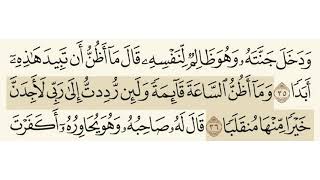 وَدَخَلَ جَنَّتَهُۥ وَهُوَ ظَالِمٌ لِّنَفْسِهِۦ قَالَ مَآ أَظُنُّ أَن تَبِيدَ هَٰذِهِۦٓ
أَبَدًا ٣٥ وَمَآ أَظُنُّ ٱلسَّاعَةَ قَآئِمَةً وَلَئِن رُّدِدتُّ إِلَىٰ رَبِّى لَأَجِدَنَّ
خَيْرًا مِّنْهَا مُنقَلَبًا ٣٦ قَالَ لَهُۥ صَاحِبُهُۥ وَهُوَ يُحَاوِرُهُۥٓ أَكَفَرْتَ